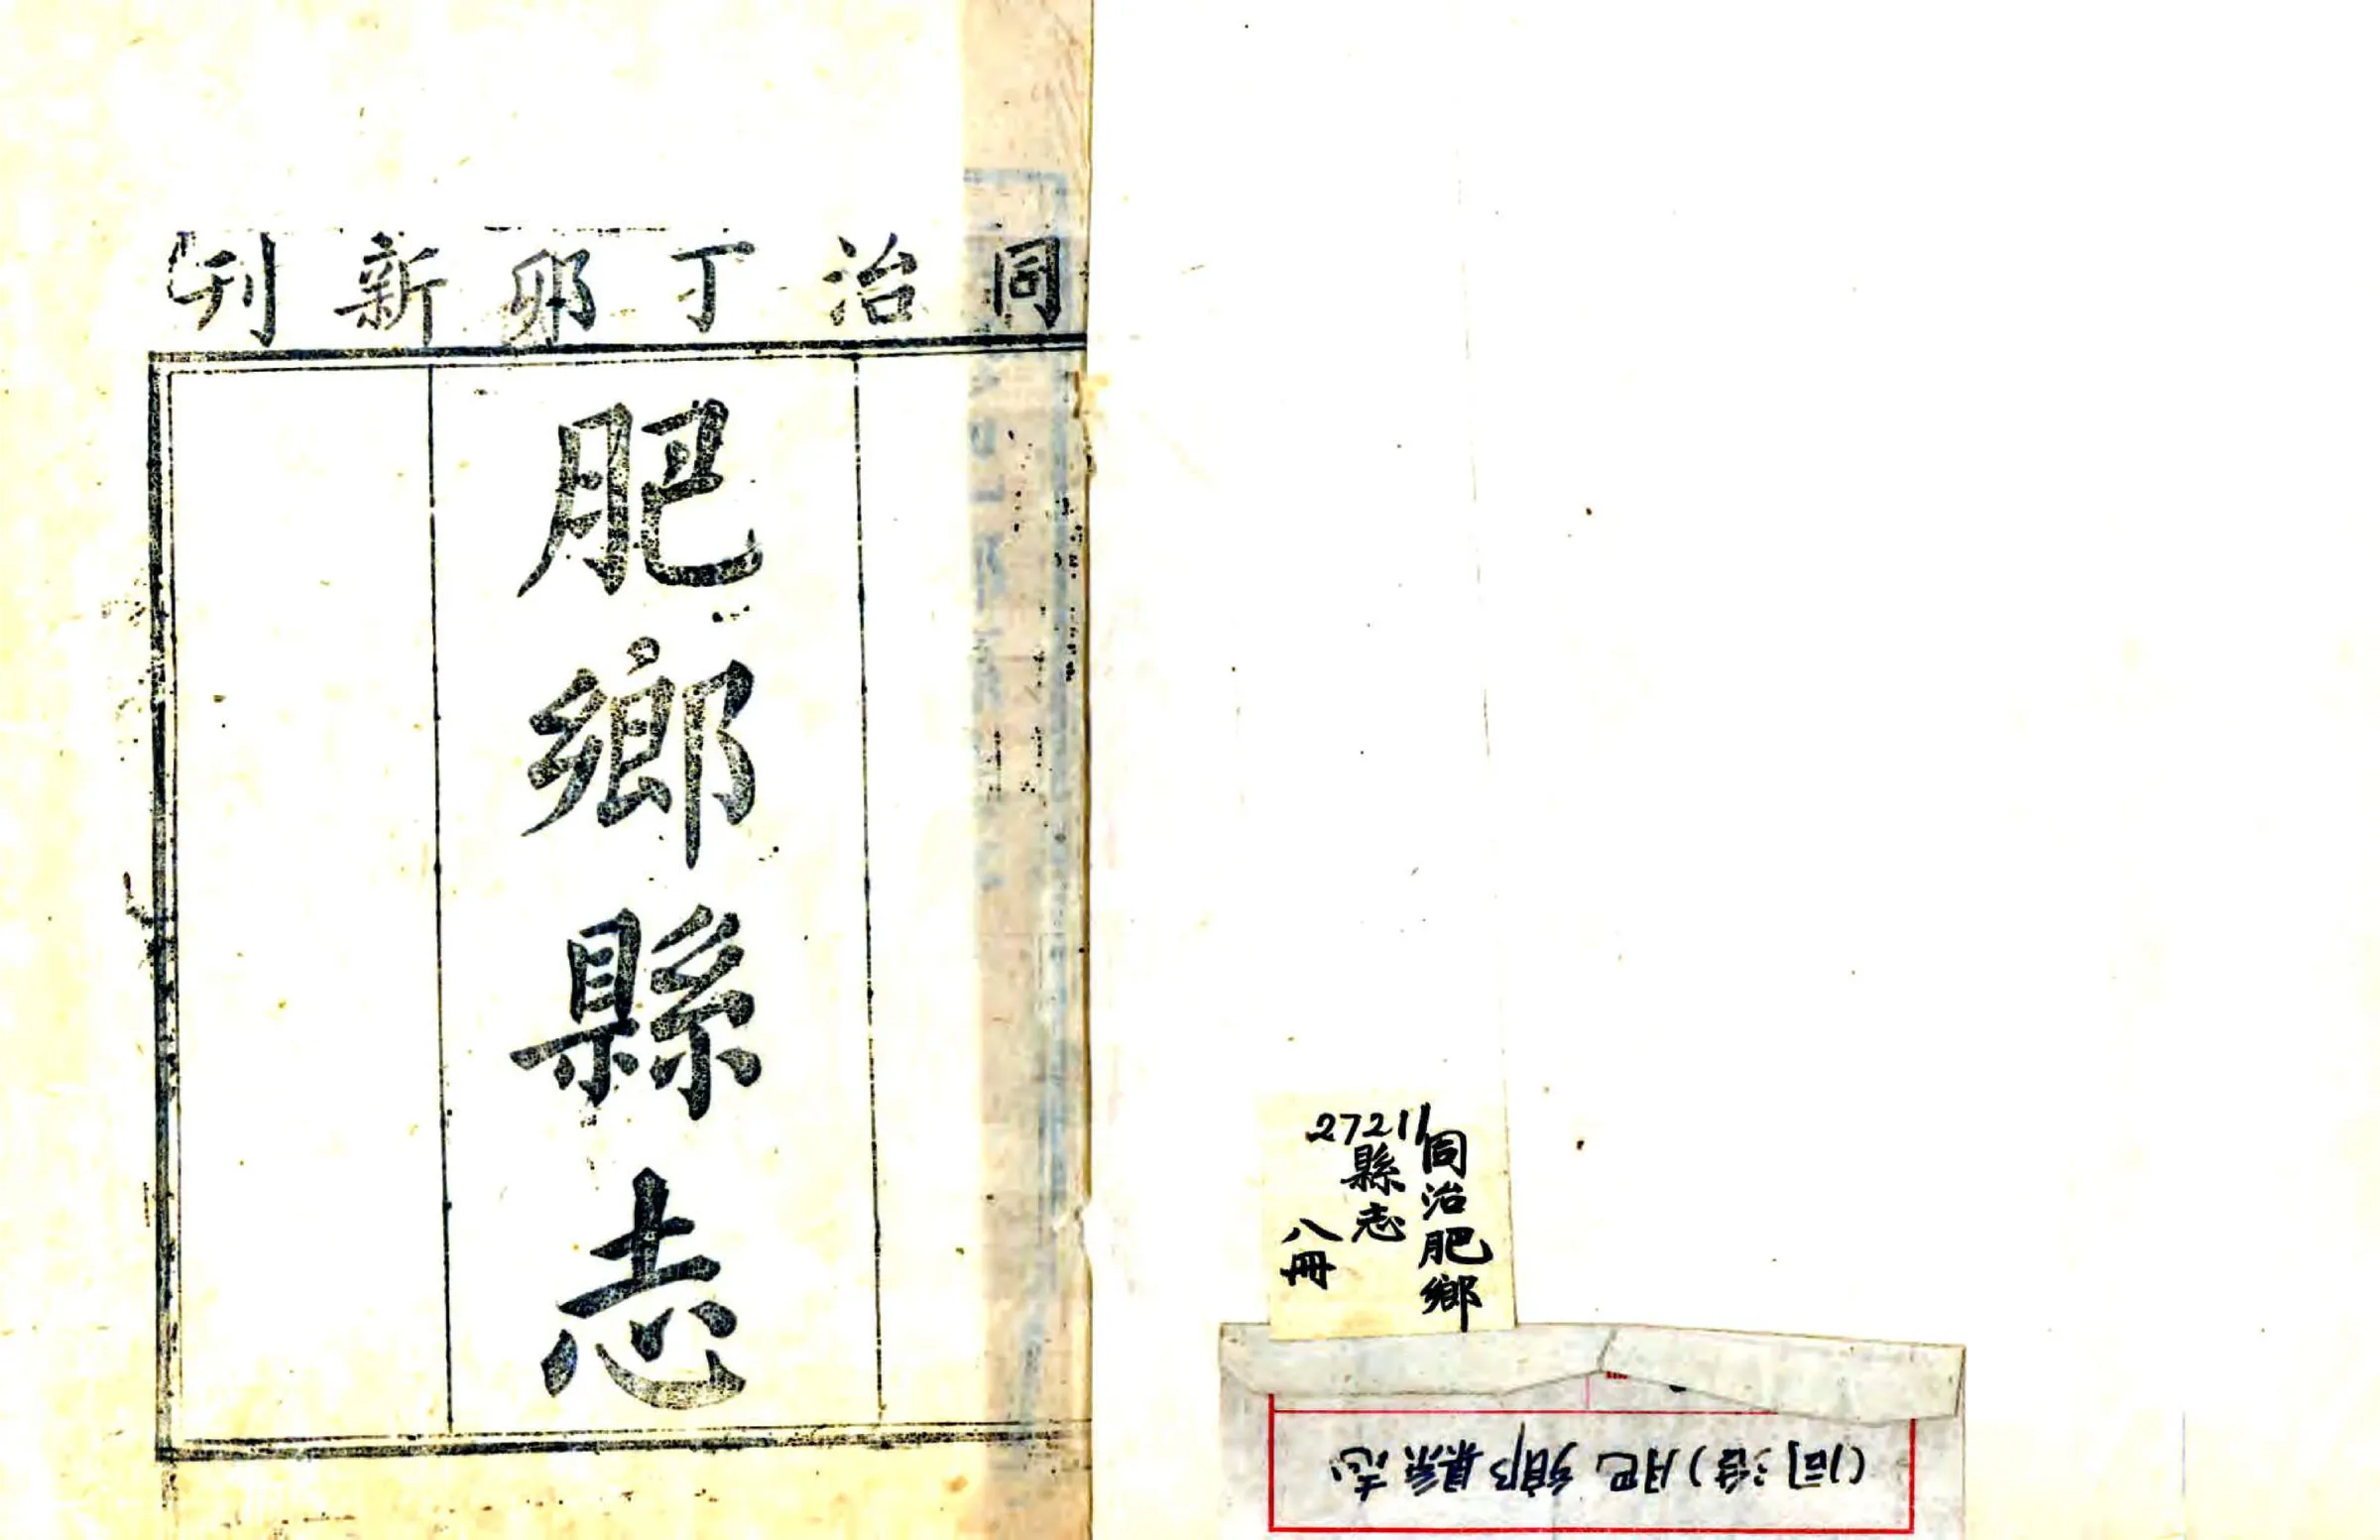 同治丁卯新刊
肥鄉縣志
27211
同治肥鄉
縣志
八冊
(同治)肥鄉縣志